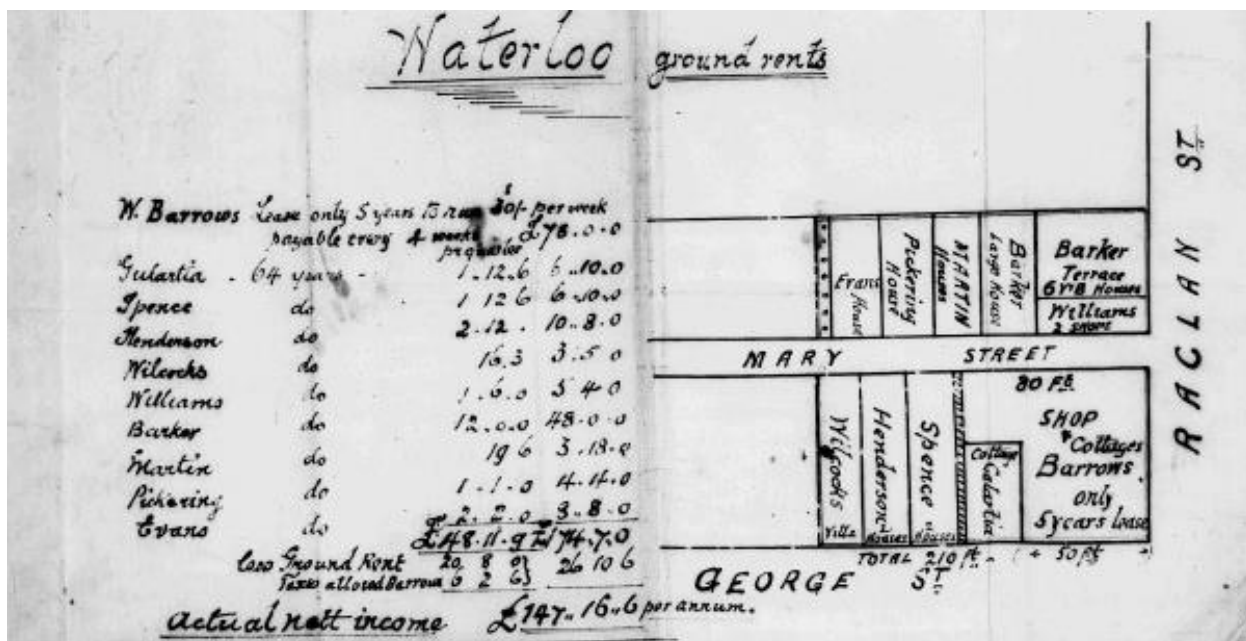 Waterloo ground rents
W. Barrows Lease only 5 years to run 30/- per week
payable every 4 weeks £78.0.0
pr quarter
Gulartia - 64 years - 1.12.6 6.10.0
Spence do 1 12 6 6.10.0
Henderson do 2.12. 10.8.0
Wilcocks do 16.3 3.5.0
Williams do 1.6.0 5 4 0
Barker do 12.0.0 48.0.0
Martin do 19 6 3.18.0
Pickering do 1.1.0 4.4.0
Evans do 2.2.0 8.8.0
£48.11.9 174.7.0
less Ground Rent 20 8 0} 26 10 6
Taxes allowed Barrow 6 2 6}
Actual nett income £147.16.6 per annum.
RAGLAN ST
Evans House
Pickering House
MARTIN Houses
Barker Large House
Barker
Terrace
6 V.B Houses
Williams
2 SHOPS
MARY STREET
80 Ft.
Wilcocks Villa
Henderson Houses
Spence Houses
Cottage Gulartia
SHOP
& Cottages
Barrows
only
5 years lease
TOTAL 210 ft. 50 ft
GEORGE ST